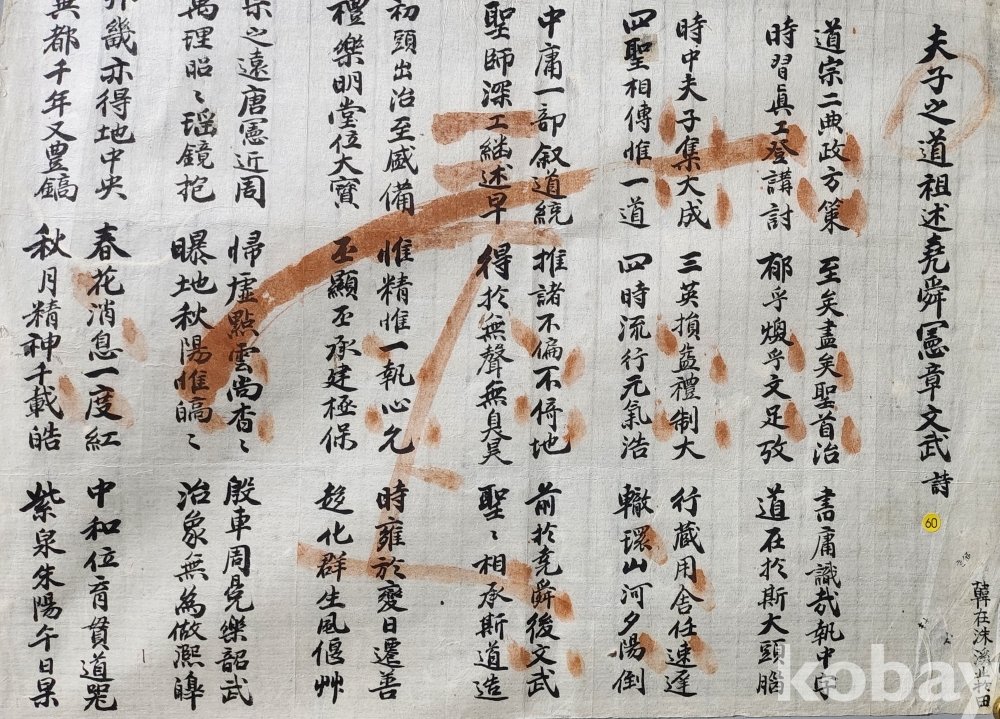 夫子之道祖述堯舜憲章文武 詩
60
道宗二典政方策
時習眞工登講討
至矣盡矣聖首治
郁乎煥乎文足攷
書庸識哉執中字
道在於斯大頭腦
時中夫子集大成
四聖相傳惟一道
三英損益禮制大
四時流行元氣浩
行藏用舍任速遲
轍環山河夕陽倒
中庸一部叙道統
聖師深工継述早
推諸不偏不倚地
得於無聲無臭昊
前於堯舜後文武
聖〻相承斯道造
初頭出治至盛備
禮樂明堂位大寶
惟精惟一執心允
丕顯丕承建極保
時雍於變日遷善
趍化群生風偃艸
之遠唐憲近周
萬理昭〻瑶鏡抱
帰墟點雲尚杳〻
曝地秋陽惟皜〻
殷車周冕樂韶武
治象無為倣凞皥
畿亦得地中央
都千年又豊鎬
春花消息一度紅
秋月精神千載皓
中和位育貫道咒
紫泉朱陽午日杲
韓在洙
kobay